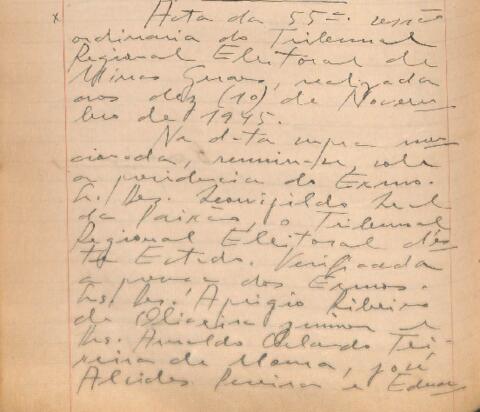 x Acta da 55ª. sessão
ordinaria do Tribunal
Regional Eleitoral de
Minas Geraes, realizada
aos dez (10) de Novem
bro de 1945.
Na data supra men
cionada, reuniu-se, sob
a presidencia do Exmo.
Sr. Des. Leovigildo Leal
da Paixão, o Tribunal
Regional Eleitoral dês
te Estado. Verificada
a presença dos Exmos.
Srs. Drs. Aprigio Ribeiro
de Oliveira Junior e
Drs. Arnaldo Orlando Tei
xeira de Moura, José
Alcides Pereira e Eduar